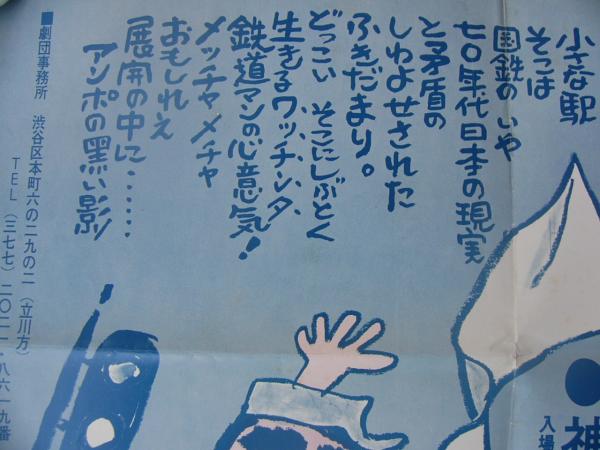 小さな駅
そこは
国鉄のいや
七〇年代日本の現実
と矛盾の
しわよせされた
ふきだまり。
どっこい そこにしぶとく
生きるワッチ、レ、タ、
鉄道マンの心意気!
メッチャメチャ
おもしれえ
展開の中に……
アンポの黒い影!
■劇団事務所 渋谷区本町六の二九の二(立川方)
TEL(三七七)二〇二一・八六一九番
●神
入場